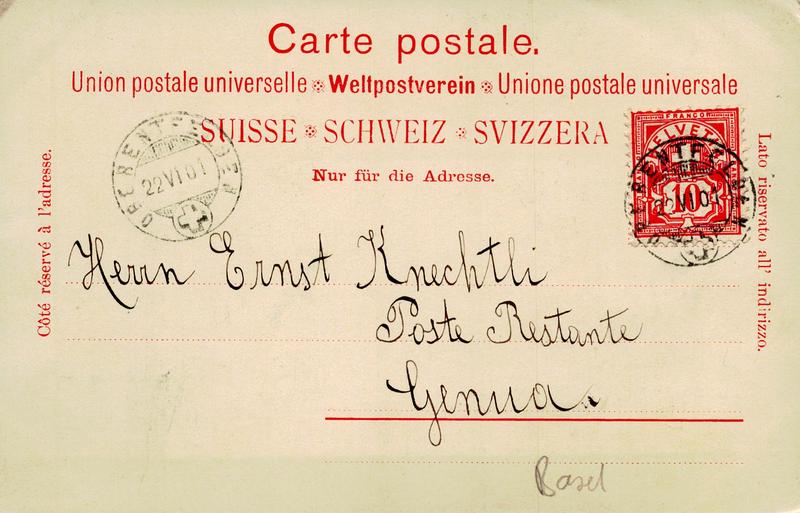 Carte postale.
Union postale universelle Weltpostverein Unione postale universale
SUISSE SCHWEIZ SVIZZERA
Nur für die Adresse.
Côté réservé à l'adresse.
Lato riservato all' indirizzo.
OBERENTFELDEN
22 VI 01
FRANCO
HELVETIA
10
OBERENTFELDEN
22 VI 01
Herrn Ernst Knechtli
Poste Restante
Genua.
Basel